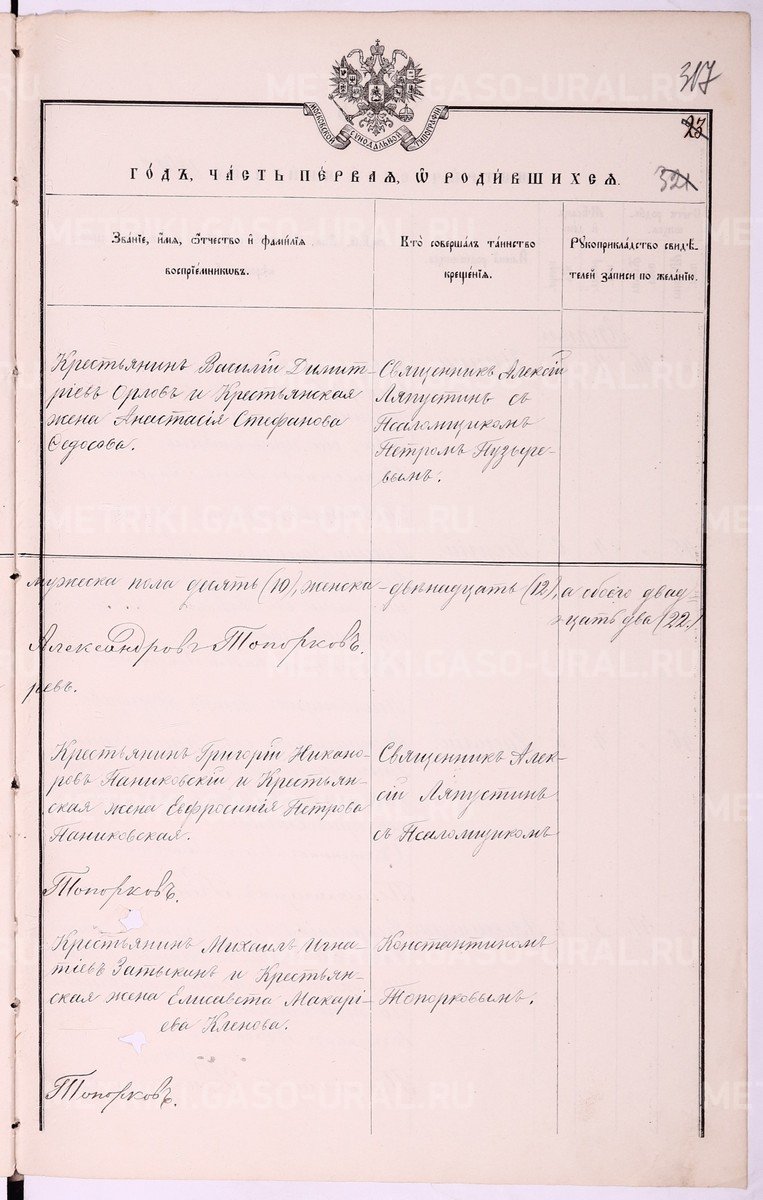 317
23
321
МОСКОВСКОЙ СѴНОДАЛЬНОЙ ТИПОГРАФІИ
ГО́ДЪ, ЧА́СТЬ ПЕ́РВАЯ, Ѽ РОДИ́ВШИХСЯ.
Зва́нїе, и́мѧ, ѻ́тчество и҆ фами́лїѧ
воспрїе́мниковъ.
Кто̀ соверша́лъ та́инство
креще́нїѧ.
Рꙋкоприкла́дство свидѣ́-
телей за́писи по жела́нїю.
Крестьянинъ Василій Димит-
ріевъ Орловъ и Крестьянская
жена Анастасія Стефанова
Федосова.
Священникъ Алексій
Ляпустинъ съ
Псаломщикомъ
Петромъ Пузыре-
вымъ.
мужеска пола десять (10), женска - двѣнадцать (12), а обоего двад-
цать два (22.)
Александровъ Топорковъ.
ревъ.
Крестьянинъ Григорій Никано-
ровъ Паниковскій и Крестьян-
ская жена Евфросинія Петрова
Паниковская.
Священникъ Алек-
сій Ляпустинъ
съ Псаломщикомъ
Топорковъ.
Крестьянинъ Михаилъ Игна-
тіевъ Затыкинъ и Крестьян-
ская жена Елисавета Макарі-
ева Кленова.
Константиномъ
Топорковымъ.
Топорковъ.
METRIKI.GASO-URAL.RU